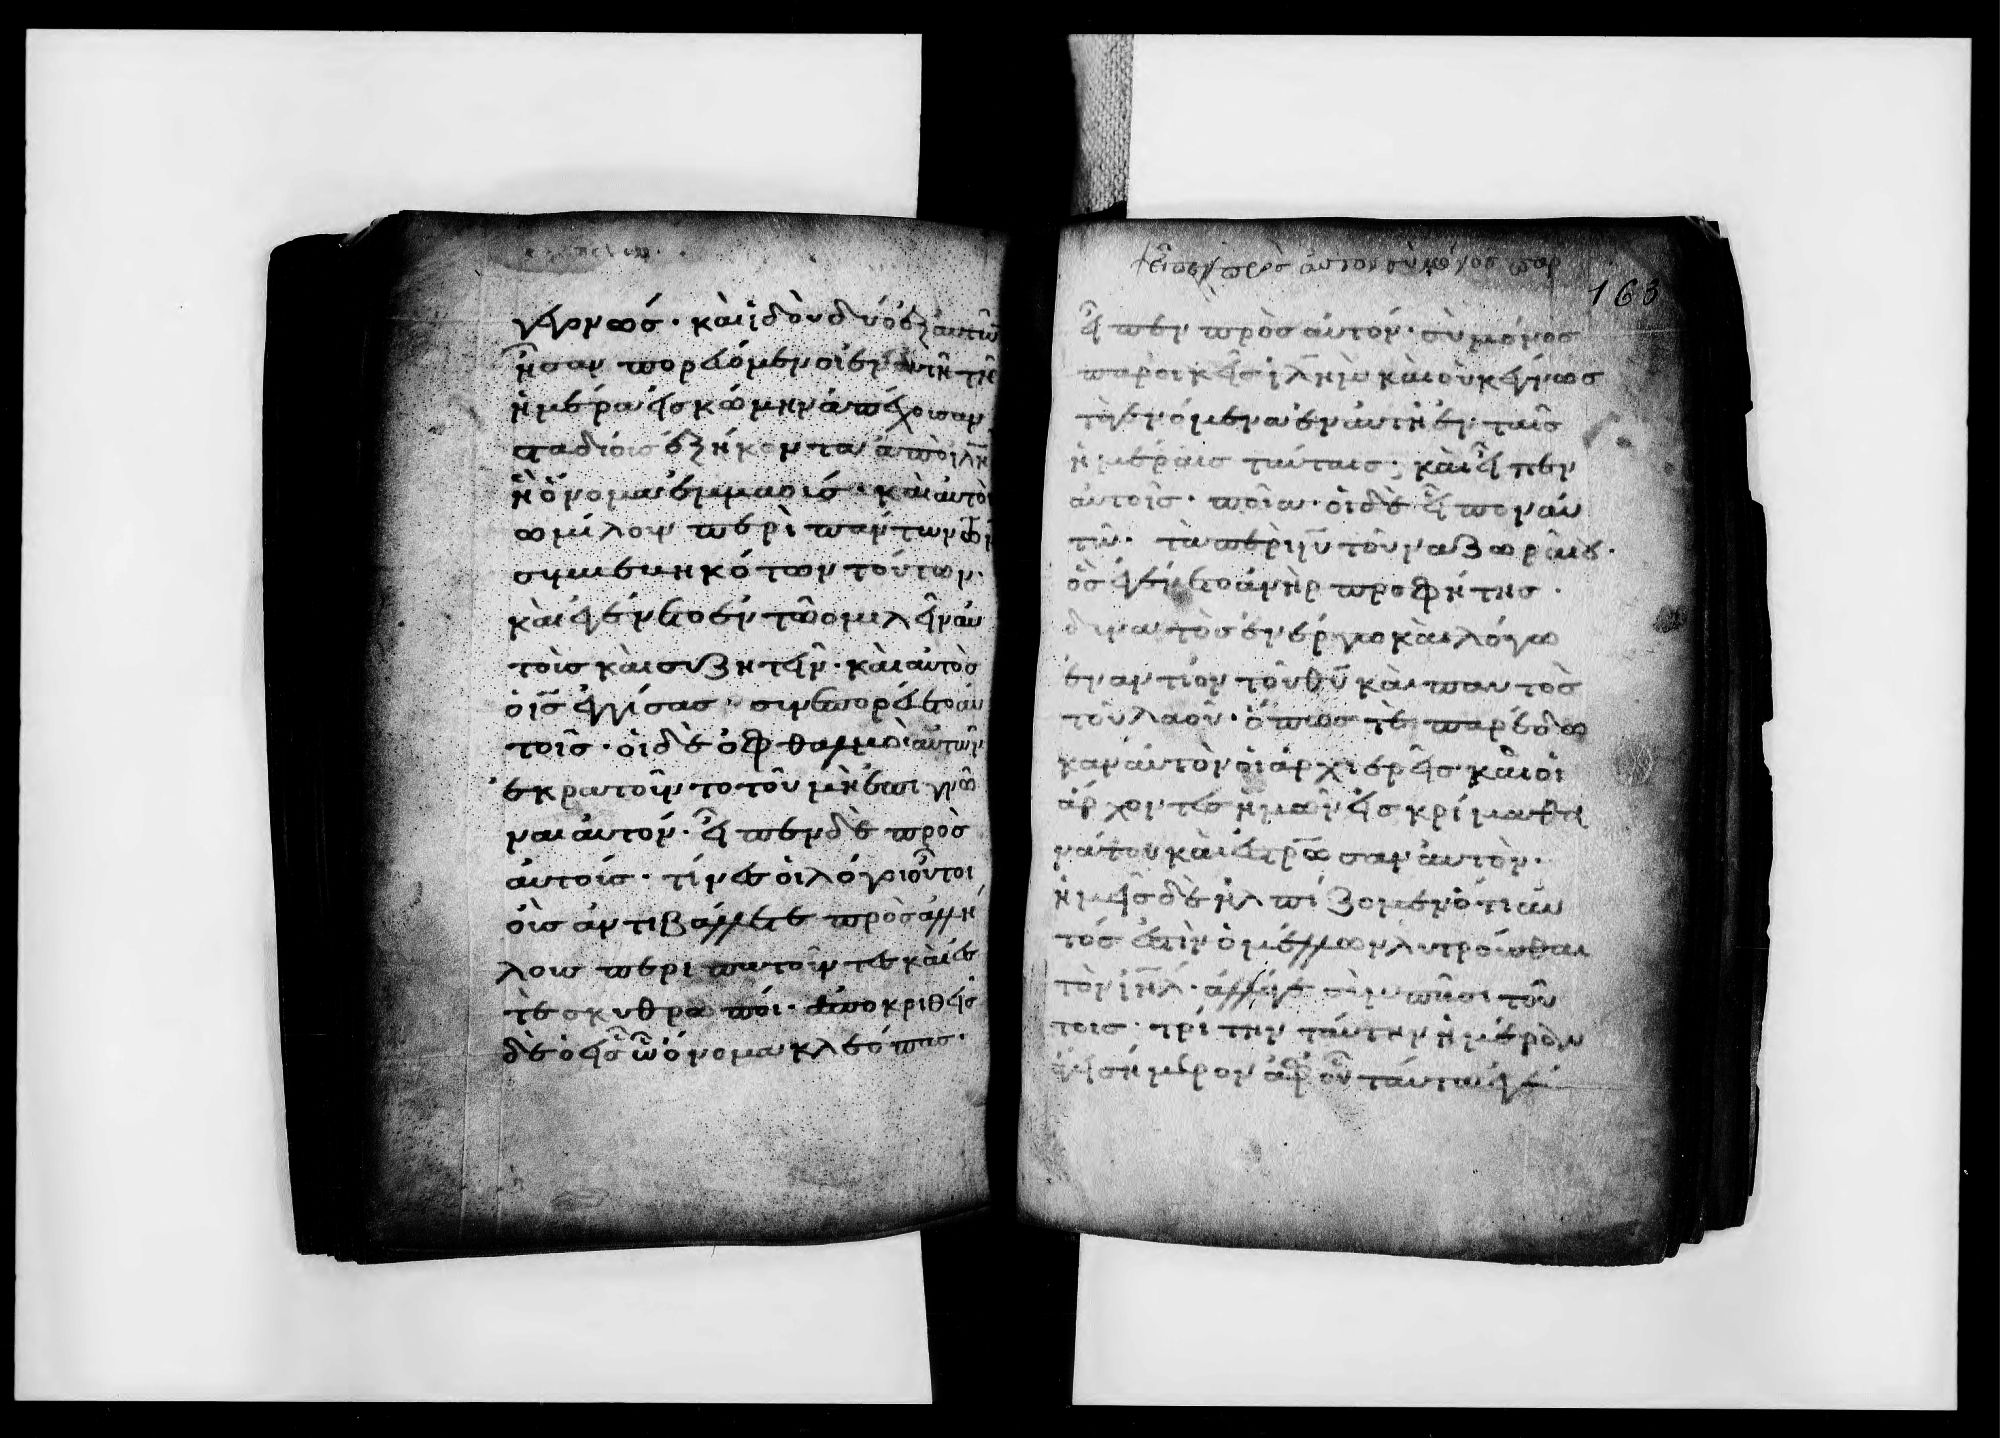 γεγονώς · καὶ ἰδοὺ δύο ἐξ αυτῶν
ἦσαν πορευόμενοι ἐν αυτῆ τῆ
ἡμέρα εἰς κώμην ἀπέχουσαν
σταδίους ἑξήκοντα ἀπὸ ιλημ
ἧ ὄνομα ἐμμαούς · καὶ αυτοὶ
ωμίλουν περὶ παντων τῶν
συμβεβηκότων τούτων ·
καὶ ἐγένετο ἐν τῶ ομιλεῖν αυ
τοὺς καὶ συζητεῖν · καὶ αυτὸς
ὁ ις ἐγγίσας συνεπορεύετο αυ
τοῖς · οἱ δὲ ὀφθαλμοὶ αὐτῶν
ἐκρατοῦντο τοῦ μὴ ἐπιγνῶ
ναι αυτόν · εἶπεν δὲ πρὸς
αυτούς · τίνες οἱ λόγοι οὗτοι
οὓς αντιβάλλετε πρὸς ἀλλή
λους περιπατοῦντες καὶ ἐσ
τὲ σκυθρωποί · ἀποκριθεὶς
δὲ ὁ εἷς ὧ ὄνομα κλεόπας ·
+ εἶπεν πρὸς αὐτον σὺ μόνος παρ
163
εἶπεν πρὸς αυτόν · σὺ μόνος
παροικεῖς ιλημ καὶ οὐκ έγνως
τὰ γενόμενα ἐν αυτῆ ἐν ταῖς
ἡμέραις ταύταις ; καὶ εἶπεν
αυτοῖς · ποῖα · οἱ δὲ εἶπον αυ
τῶ · τὰ περὶ ιυ τοῦ ναζωραίου ·
ὃς ἐγένετο ἀνὴρ προφήτης ·
δυνατὸς ἐν έργω καὶ λόγω
ἐναντίον τοῦ θυ καὶ παντὸς
τοῦ λαοῦ · ὅπως τὲ παρέδω
καν αυτὸν οἱ ἀρχιερεῖς καὶ οἱ
ἄρχοντες ἡμῶν εἰς κρίμα θα
νάτου καὶ ἐστρωσαν αυτὸν ·
ἡμεῖς δὲ ἠλπίζομεν ὅτι αυ
τός ἐστὶν ὁ μέλλων λυτροῦσθαι
τὸν ιηλ · ἀλλά γε σὺν πᾶσι τού
τοις · τρίτην ταύτην ἡμέραν
ἄγει σήμερον ἀφ οὗ ταῦτα ἐγέ